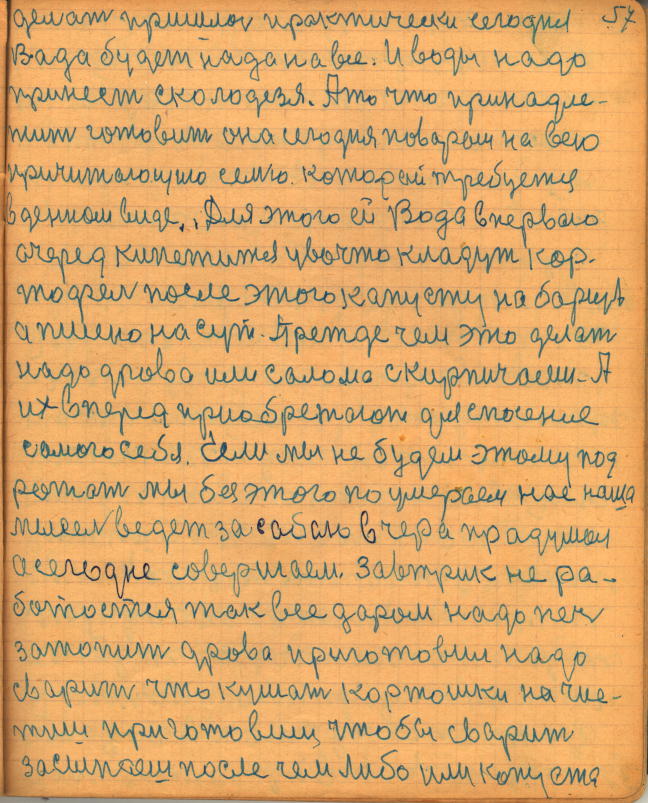 делат пришлос практически сегодня 57
Вада будет нада на все. И воды надо
принест сколодезя. Ато что принадле-
жит готовит она сегодня поваром на всю
причитающию семю. Которой требуется
в денном виде. Для этого ей Вода впервою
очеред кипетится увочто кладут кор-
тофел после этого капусту на борщь
а пшено на суп. Прежде чем это делат
надо дрова или салома скирпичами. А
их вперед приобретают для спосение
самого себя. Если мы не будем этому под
ротат мы без этого по умераем нас наша
мысел ведет за сабаю вчера прадумал
а сегодне совершаем. Завтрик не ра-
ботостся так все даром надо печ
затопит дрова приготовил надо
сварит что кушат картошки на чис-
тиш приготовиш чтобы сварит
засыпаеш после чем либо или капуста